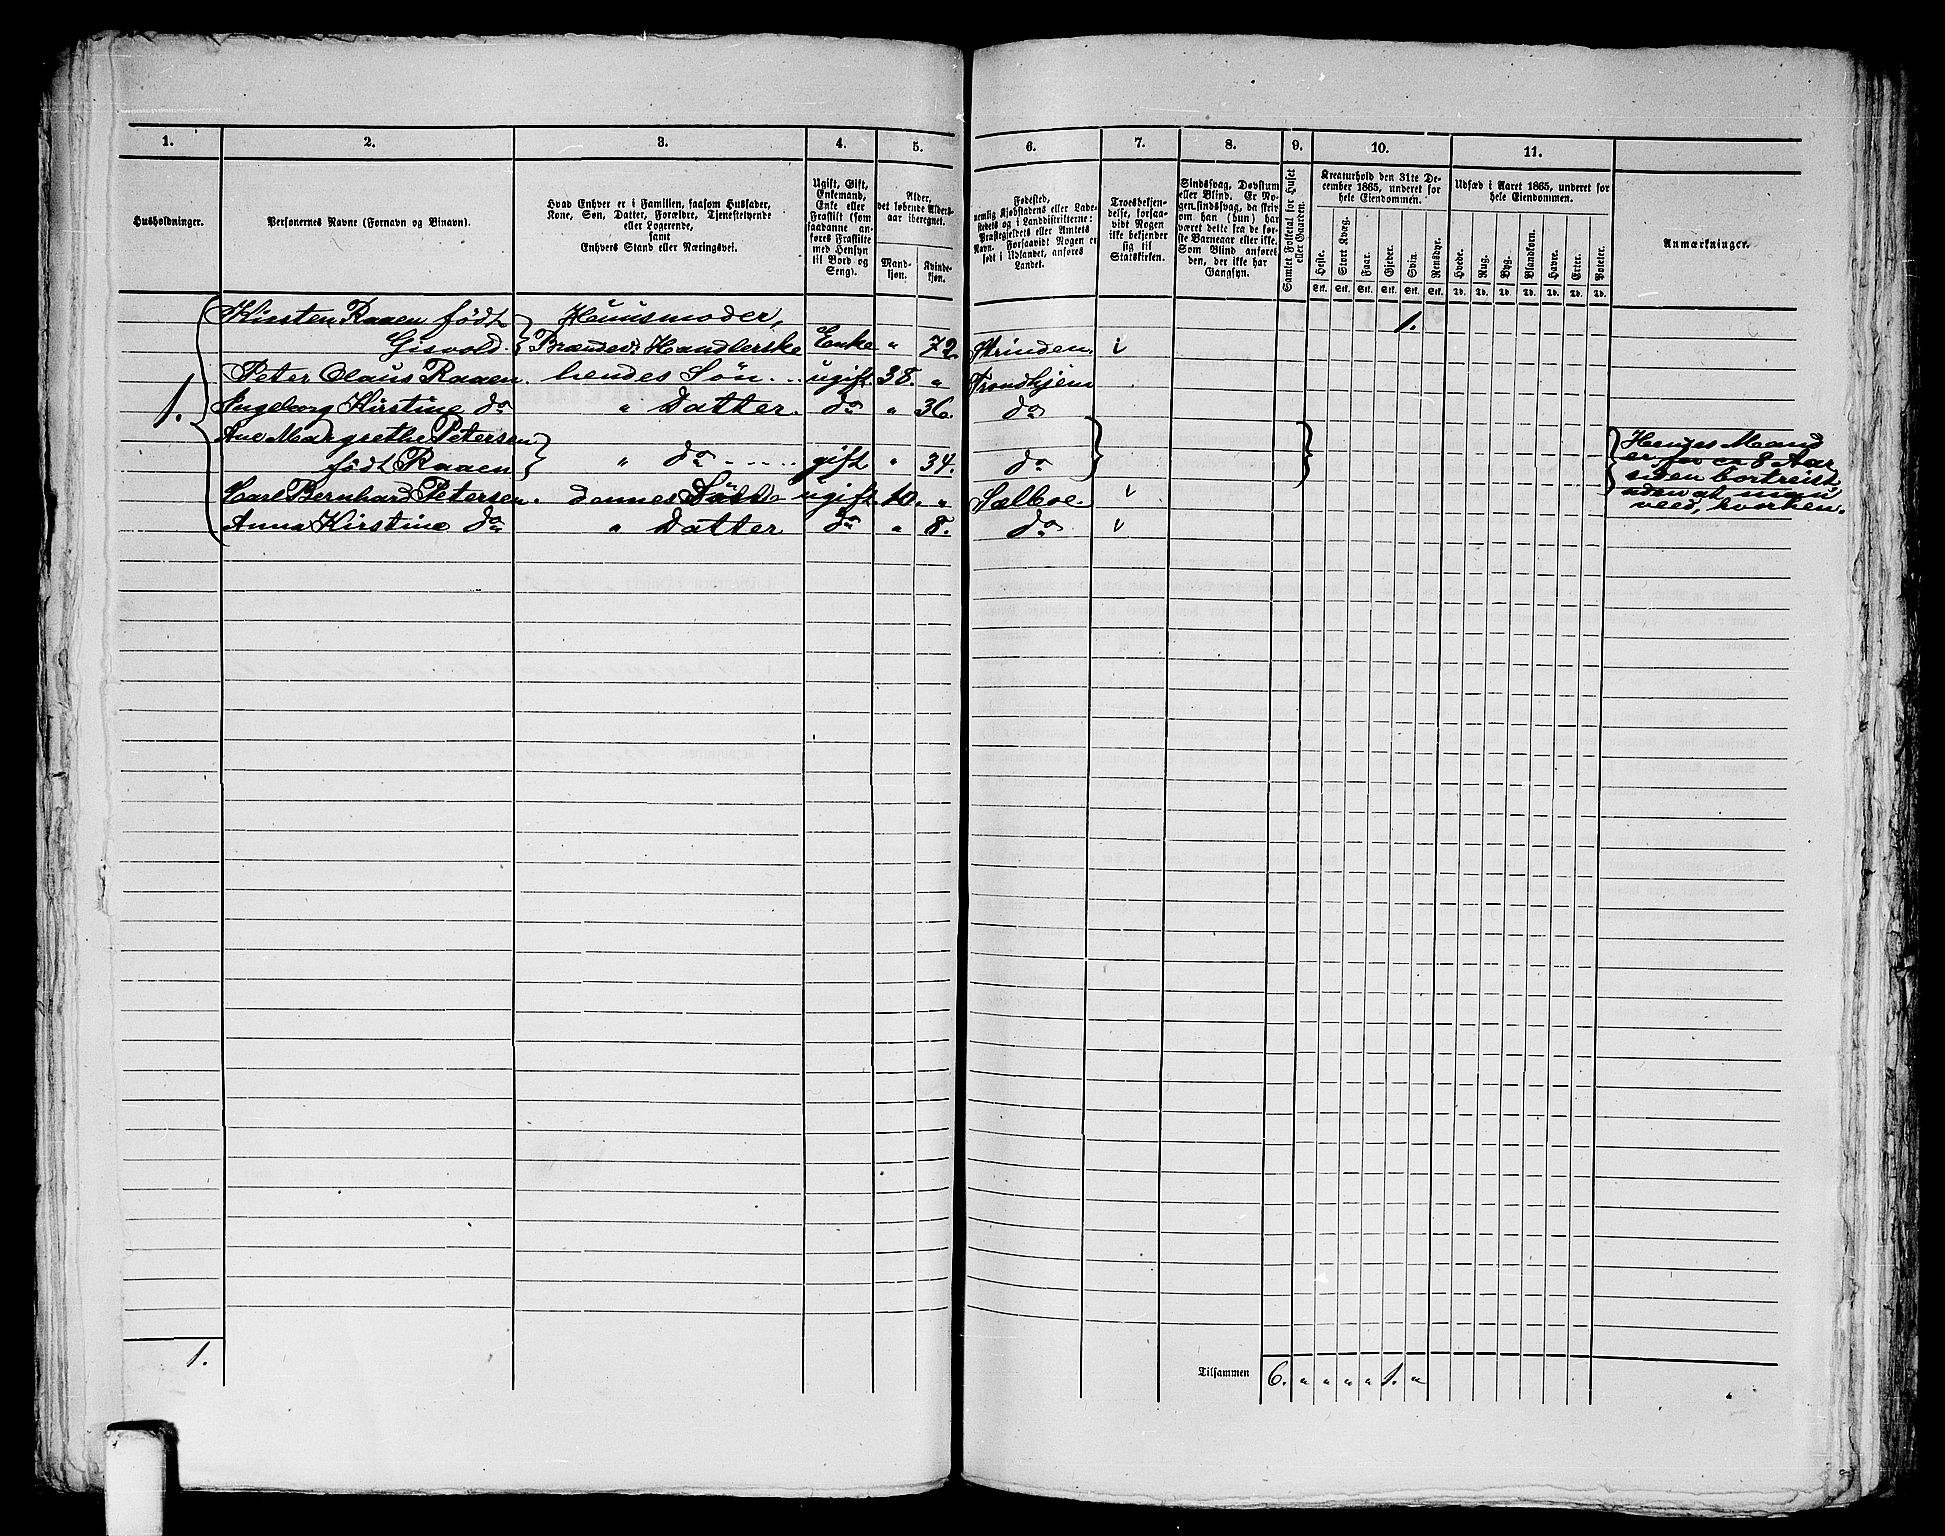 1. 2. 3. 4. 5. 6. 7. 8. 9. 10. 11.
Husholdninger.
Personernes Navne (Fornavn og Binavn).
Hvad Enhver er i Familien, saasom Husfader,
Kone, Søn, Datter, Forældre, Tjenestetyende
eller Logerende,
samt
Enhvers Stand eller Næringsvei.
Ugift, Gift,
Enkemand,
Enke eller
Fraskilt (som
saadanne an-
føres Fraskilte
med Hensyn
til Bord og
Seng).
Alder,
det løbende Alders-
aar iberegnet.
Mand-
kjøn.
Kvinde-
kjøn.
Fødested,
nemlig Kjøbstadens eller Lade-
stedets og i Landdistrikterne:
Præstegjeldets eller Amtets
Navn. Forsaavidt Nogen er
født i Udlandet, anføres
Landet.
Troesbekjen-
delse, forsaa-
vidt Nogen
ikke bekjender
sig til
Statskirken.
Sindssvag, Døvstum
eller Blind. Er No-
gen sindssvag, da skriv
om han (hun) har
været dette fra de før-
ste Barneaar eller ikke.
Som Blind anføres
den, der ikke har
Gangsyn.
Samlet Folketal for Huset
eller Gaarden.
Kreaturhold den 31te De-
cember 1865, underet for
hele Eiendommen.
Heste. Stort Kvæg. Faar. Gjeder. Svin. Rensdyr.
Stk. Stk. Stk. Stk. Stk. Stk.
Udsæd i Aaret 1865, underet for
hele Eiendommen.
Hvede. Rug. Byg. Blandkorn. Havre. Erter. Poteter.
Td. Td. Td. Td. Td. Td. Td.
Anmærkninger.
1.
Kirsten Raaen født Huusmoder, 1.
Gisvold. Handlerske Enke " 72. Strinden
Peter Claus Raaen. hendes Søn ugift 38. " Trondhjem
Ingeborg Kirstine do " Datter. do " 36. do
Ane Margrethe Petersen
født Raaen " do gift " 34. do
Hendes Mand
er for ca 8 Aar
siden bortreist
uden at man
veed, hvorhen.
Carl Bernhard Petersen. dennes Søn ugift 10. " Sælboe
Anna Kirstine do " Datter do " 8. do
1.
Tilsammen 6. " " " " 1. "